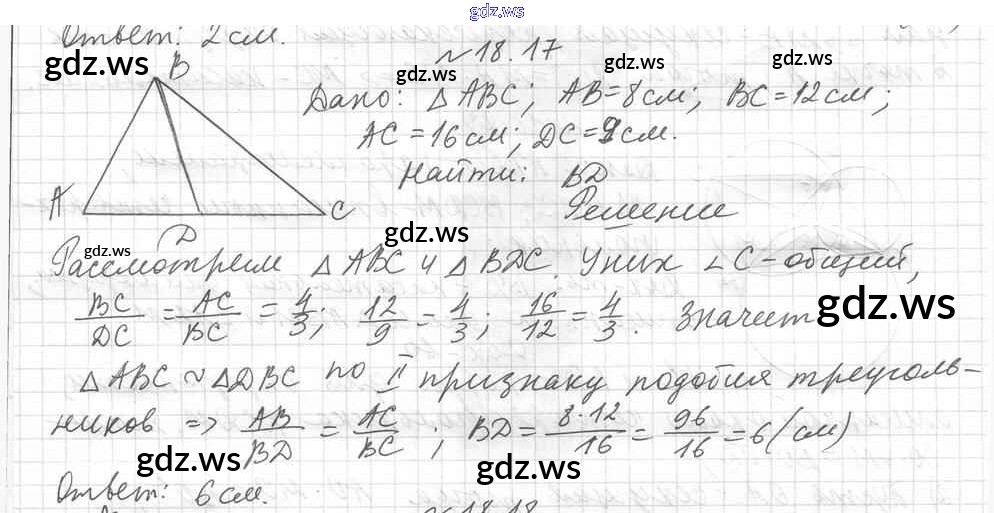 gdz.ws
Ответ: 2 см.
gdz.ws
№ 18.17
gdz.ws
gdz.ws
gdz.ws
B
Дано: △ ABC; AB = 8 см; BC = 12 см;
AC = 16 см; DC = 9 см.
gdz.ws
Найти: BD
A
C
D
Решение
gdz.ws
gdz.ws
Рассмотрим △ ABC и △ BDC. У них ∠ C - общий,
BC/DC = AC/BC = 4/3; 12/9 = 4/3; 16/12 = 4/3. Значит
gdz.ws
△ ABC ~ △ DBC по II признаку подобия треуголь-
ников => AB/BD = AC/BC; BD = 8·12/16 = 96/16 = 6 (см)
gdz.ws
gdz.ws
Ответ: 6 см.
№ 18.18